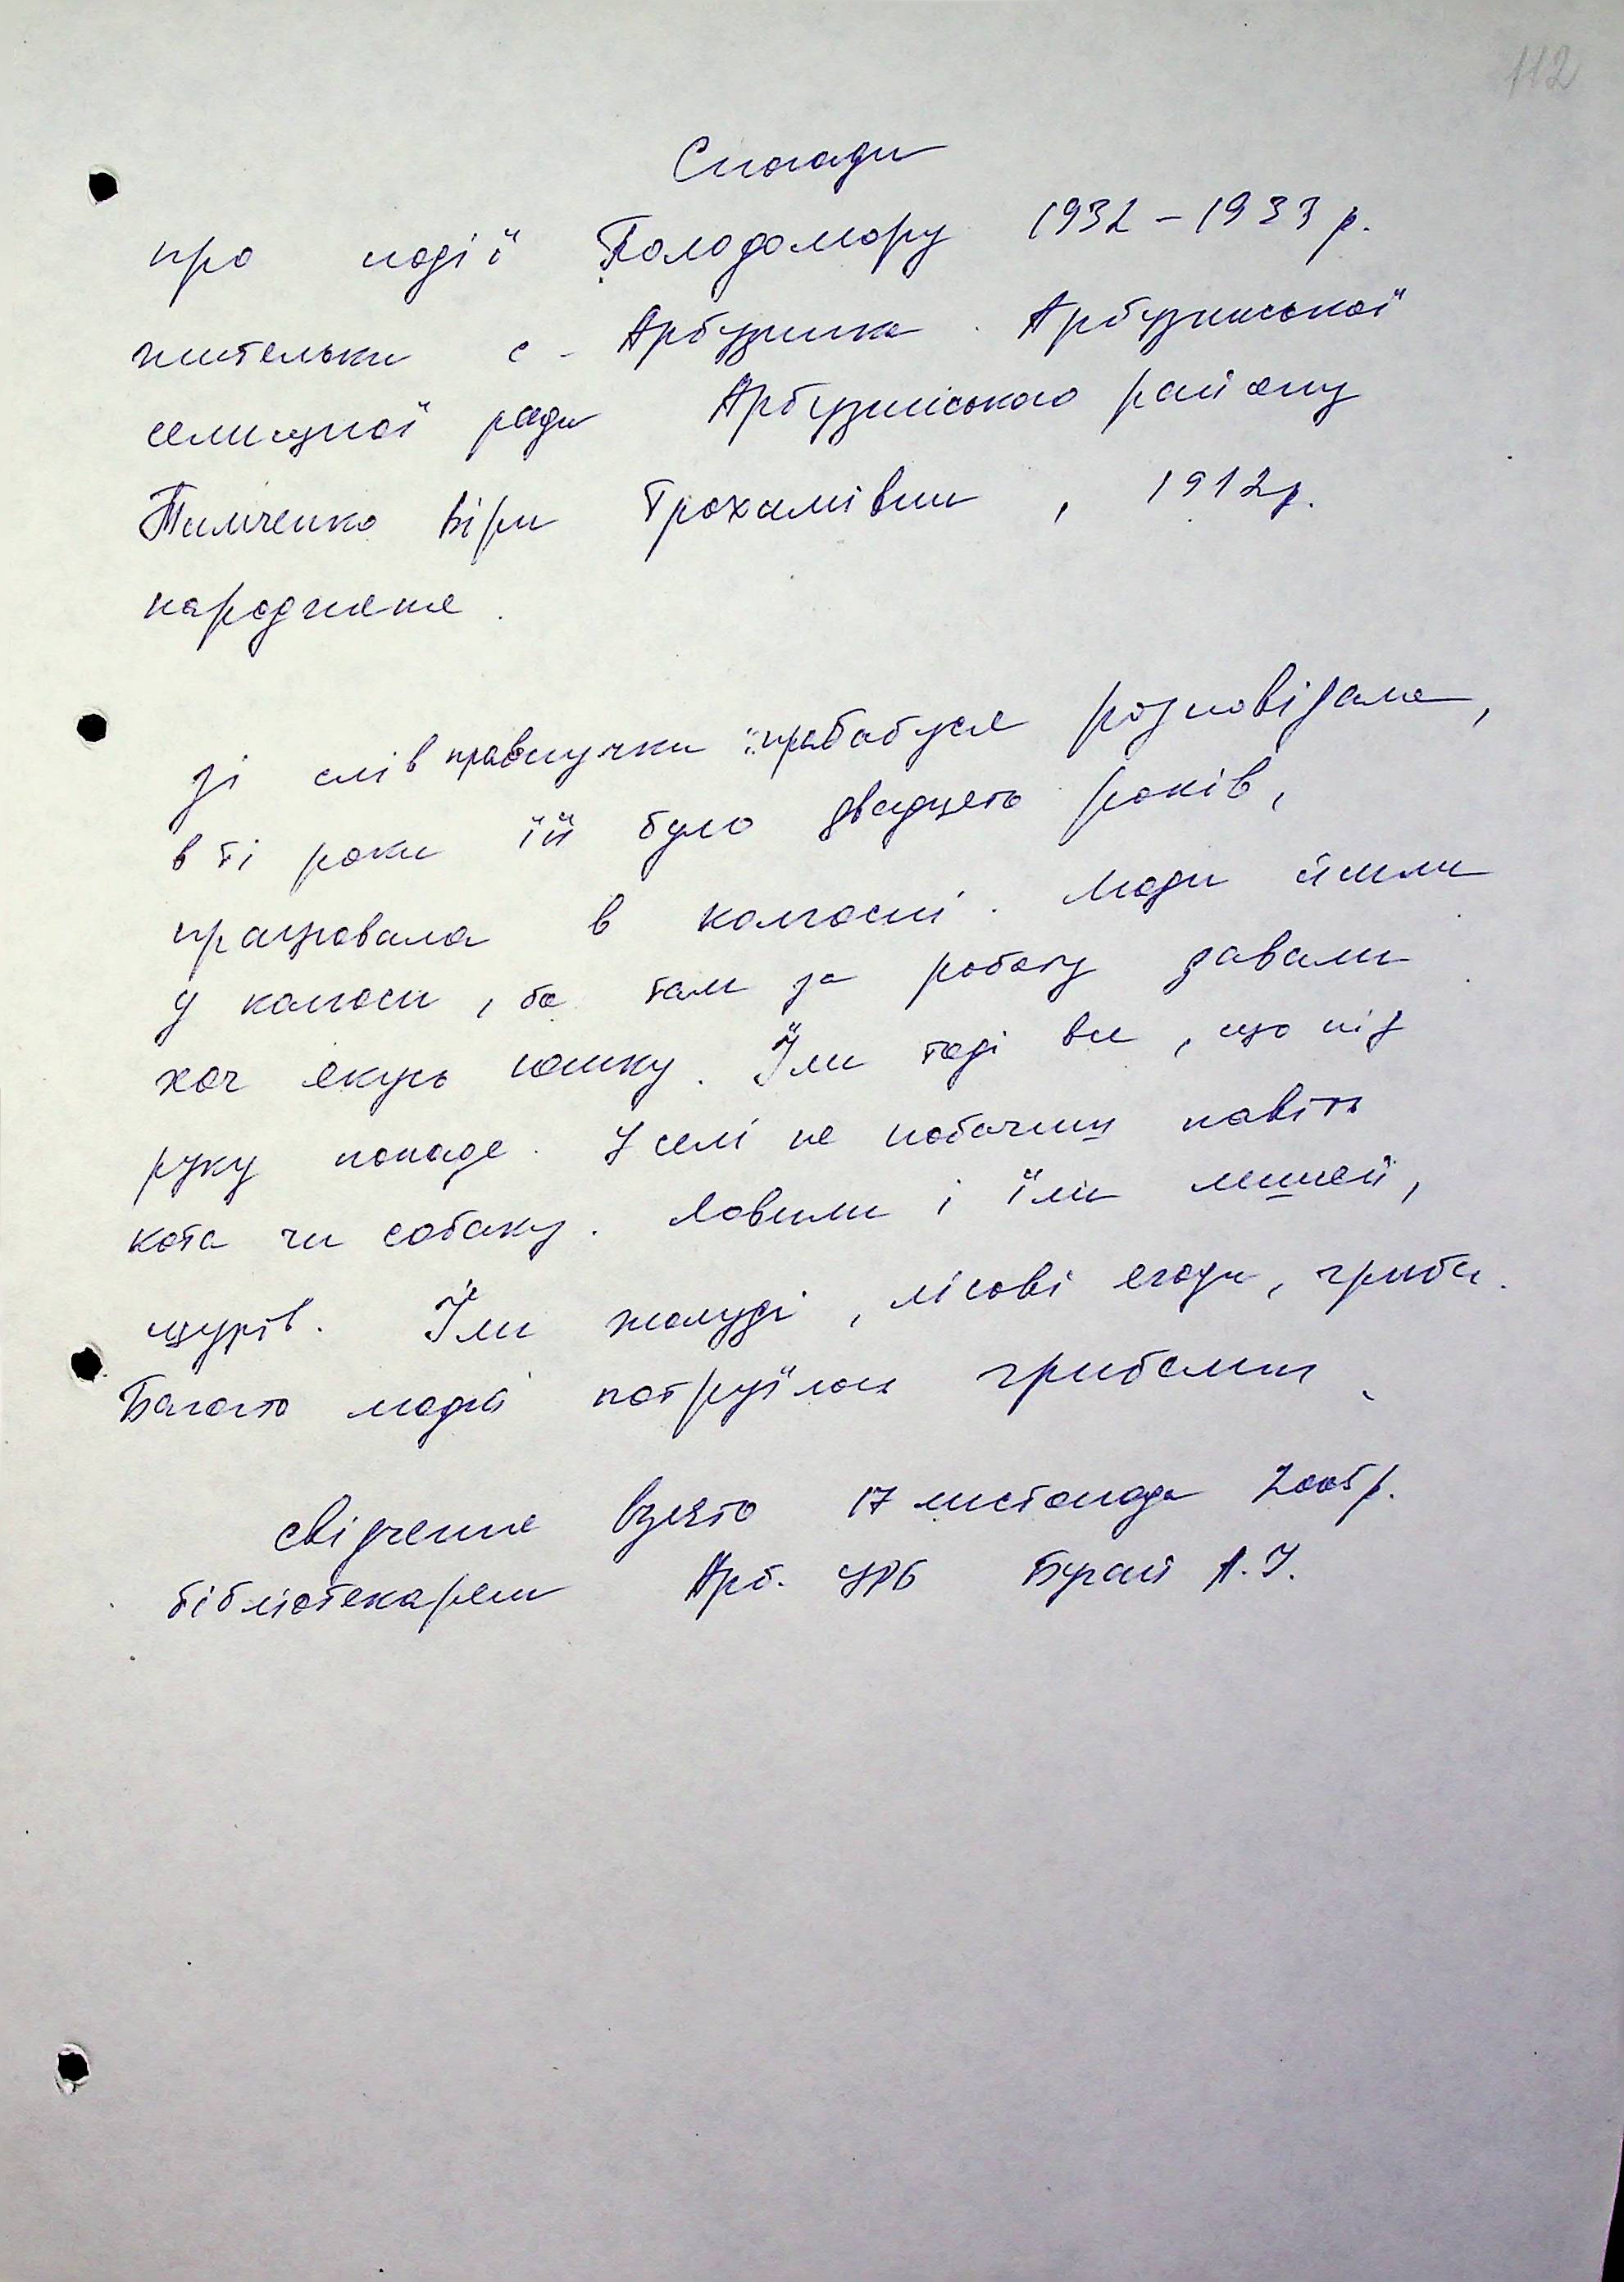 112
Спогади
про події Голодомору 1932-1933 р.
жительки с. Арбузинка Арбузинської
селищної ради Арбузинського району
Тимченко Віри Трохимівни, 1912р.
народження.
Зі слів правнучки: прабабуся розповідала,
в ті роки їй було двадцять років,
працювала в колгоспі. Люди йшли
у колгосп, бо там за роботу давали
хоч якусь юшку. Їли тоді все, що під
руку попаде. У селі не побачиш навіть
кота чи собаку. Ловили і їли мишей,
щурів. Їли жолуді, лісові ягоди, гриби.
Багато людей потруїлось грибами.
Свідчення взято 17 листопада 2005р.
бібліотекарем Арб. ЦРБ А.І.